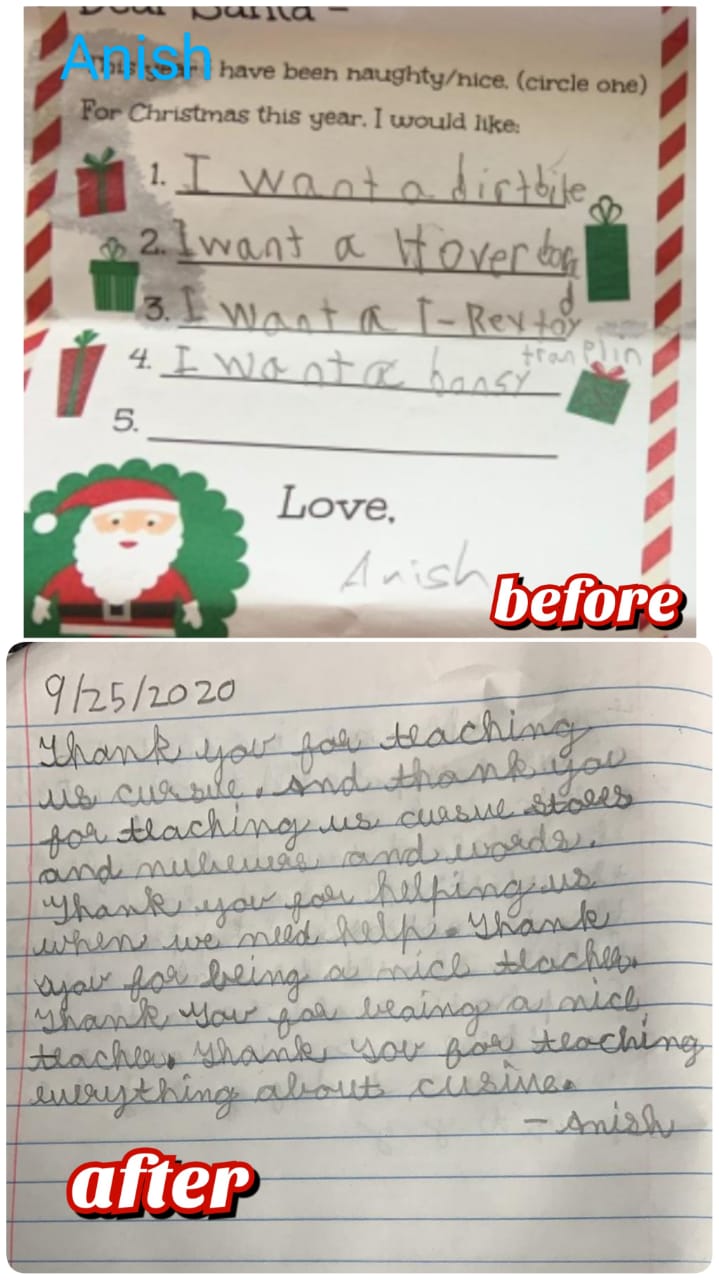 Dear Santa -
Anish
This year I have been naughty/nice. (circle one)
For Christmas this year, I would like:
1. I want a dirtbike
2. I want a Hover bog
d
3. I want a T-Rex toy
tranplin
4. I want a bonsy
5.
Love,
Anish
before
9/25/2020
Thank you for teaching
us cursive. And thank you
for teaching us cursue
and and words.
Thank you for helping us
when we need help. Thank
you for being a nice teacher.
Thank you for beaing a nice
teacher. Thank you for teaching
everything about cusine.
- Anish
after